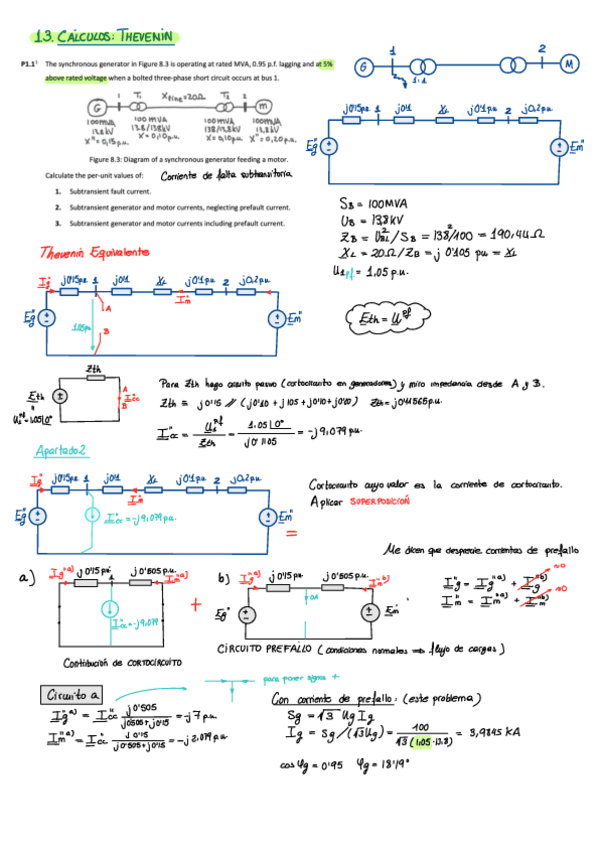 1.3. CÁLCULOS: THEVENIN
P1.1¹ The synchronous generator in Figure 8.3 is operating at rated MVA, 0.95 p.f. lagging and at 5%
above rated voltage when a bolted three-phase short circuit occurs at bus 1.
1 T₁ Xline=20Ω T₂ 2
G m
100MVA 100 MVA 100MVA 100MVA
13.8kV 13.8/138kV 138/13,8kV 13,8kV
X''=0,15pu X=0,10pu X=0,10pu X''=0,20pu
Figure 8.3: Diagram of a synchronous generator feeding a motor.
Calculate the per-unit values of: Corriente de falta subtransitoria
1. Subtransient fault current.
2. Subtransient generator and motor currents, neglecting prefault current.
3. Subtransient generator and motor currents including prefault current.
G 1 2 M
1.1
j0'15pu 1 j0'1 XL j0'1pu 2 j0,2pu
Eg'' Em''
SB = 100MVA
UB = 13,8kV
ZB = UB²/SB = 138²/100 = 190,44Ω
XL = 20Ω/ZB = j 0'105 pu = XL
U1pf = 1.05 p.u.
Eth = U^pf
Thevenin Equivalente
Ig'' j0'15pu 1 j0'1 XL j0'1pu 2 j0,2pu
A Im''
Eg'' 1.05pu Em''
B
Zth
Eth A Icc''
B
U1^pf=1.05|0°
Para Zth hago circuito pasivo (cortocircuito en generadores) y miro impedancia desde A y B.
Zth = j0'15 // (j0'10 + j105 + j0'10 + j0'20) Zth = j0'11565 p.u.
Icc'' = U1^pf / Zth = 1.05|0° / j0'1105 = -j9,079 p.u.
Apartado 2
Ig'' j0'15pu 1 j0'1 XL j0'1pu 2 j0,2pu
Im''
Eg'' Icc''=-j9,079 pu. Em''
=
Cortocircuito cuyo valor es la corriente de cortocircuito.
Aplicar SUPERPOSICIÓN
Me dicen que desprecie corrientes de prefallo
a) Ig''a) j0'15 pu j0'505 p.u. Im''a)
Icc''=-j9,079
+
b) Ig''b) j0'15pu j0'505pu Im''b)
0A
Eg'' Em''
Ig'' = Ig''a) + Ig''b) →0
Im'' = Im''a) + Im''b) →0
Contribución de CORTOCIRCUITO
CIRCUITO PREFALLO (condiciones normales ⇒ flujo de cargas)
para poner signo +
Circuito a
Ig''a) = Icc'' j0'505 / j0'505+j0'15 = -j7 p.u.
Im''a) = Icc'' j0'15 / j0'505+j0'15 = -j2.079 p.u.
Con corriente de prefallo: (este problema)
Sg = √3 Ug Ig
Ig = Sg/(√3Ug) = 100 / √3 (1,05·13,8) = 3,9845 KA
cos φg = 0'95 φg = 18'19°